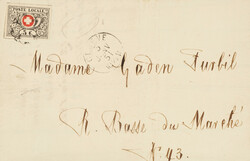 POSTE LOCALE
Madame Gaden Turbil
R. Basse du Marché
N. 43.